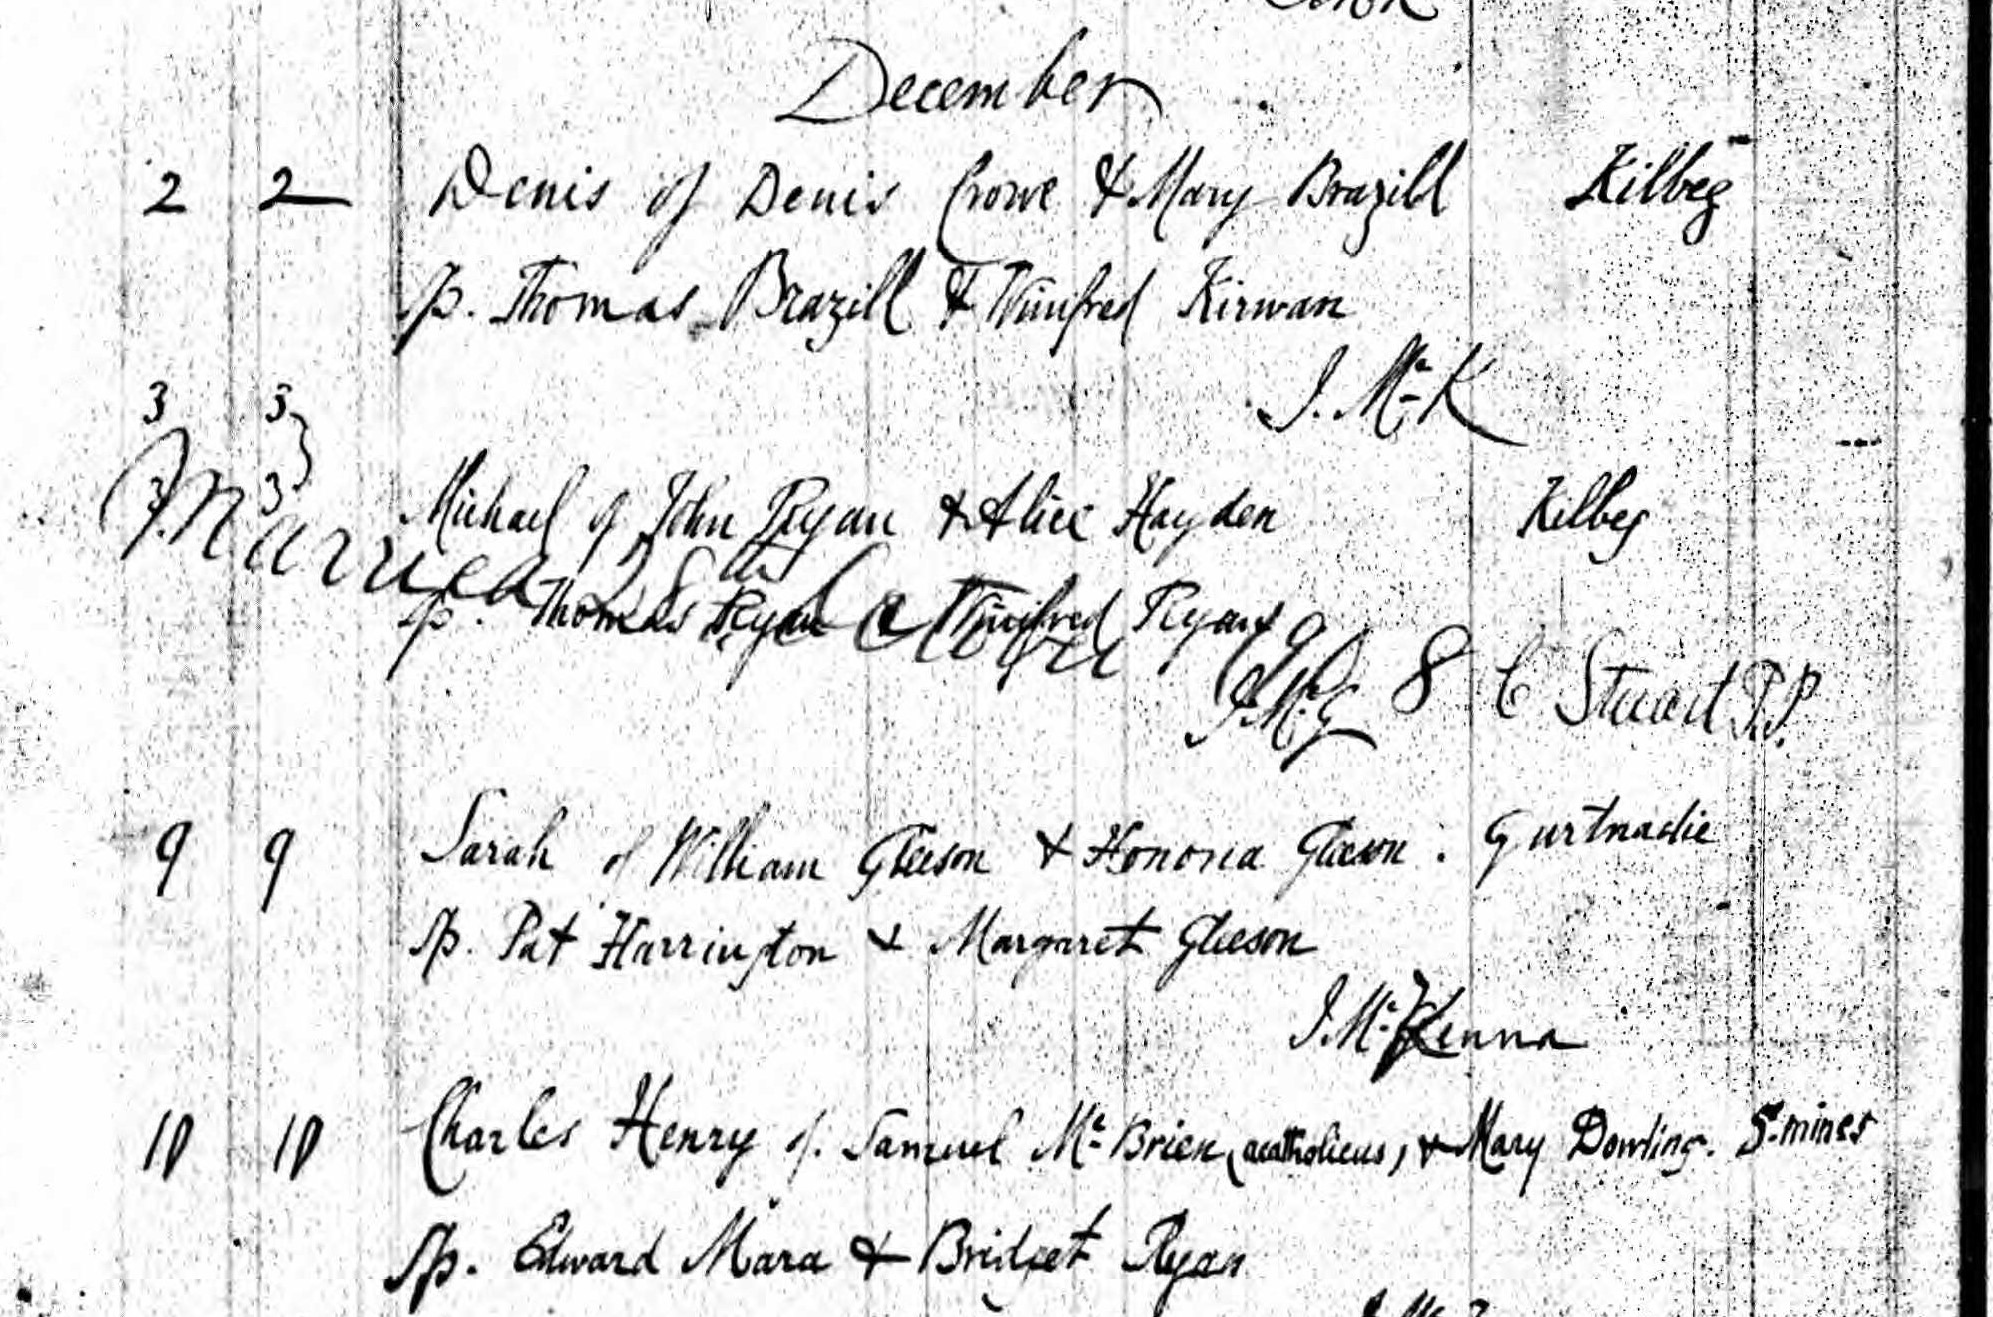 December
2 2 Denis of Denis Crowe & Mary Brazill Kilbeg
Sp. Thomas Brazill & Winifred Kirwan
J. McK
3 3
3 3 Michael of John Ryan & Alice Hayden Kilbeg
Married 28th October
Sp. Thomas Ryan & Winifred Ryan
8 C Stuart P.P.
9 9 Sarah of William Gleeson & Honora Gleeson. Gurtnadie
Sp. Pat Harrington & Margaret Gleeson
J. McKenna
10 10 Charles Henry of Samuel McBrien (acatholicus) & Mary Dowling. S.mines
Sp. Edward Mara & Bridget Ryan